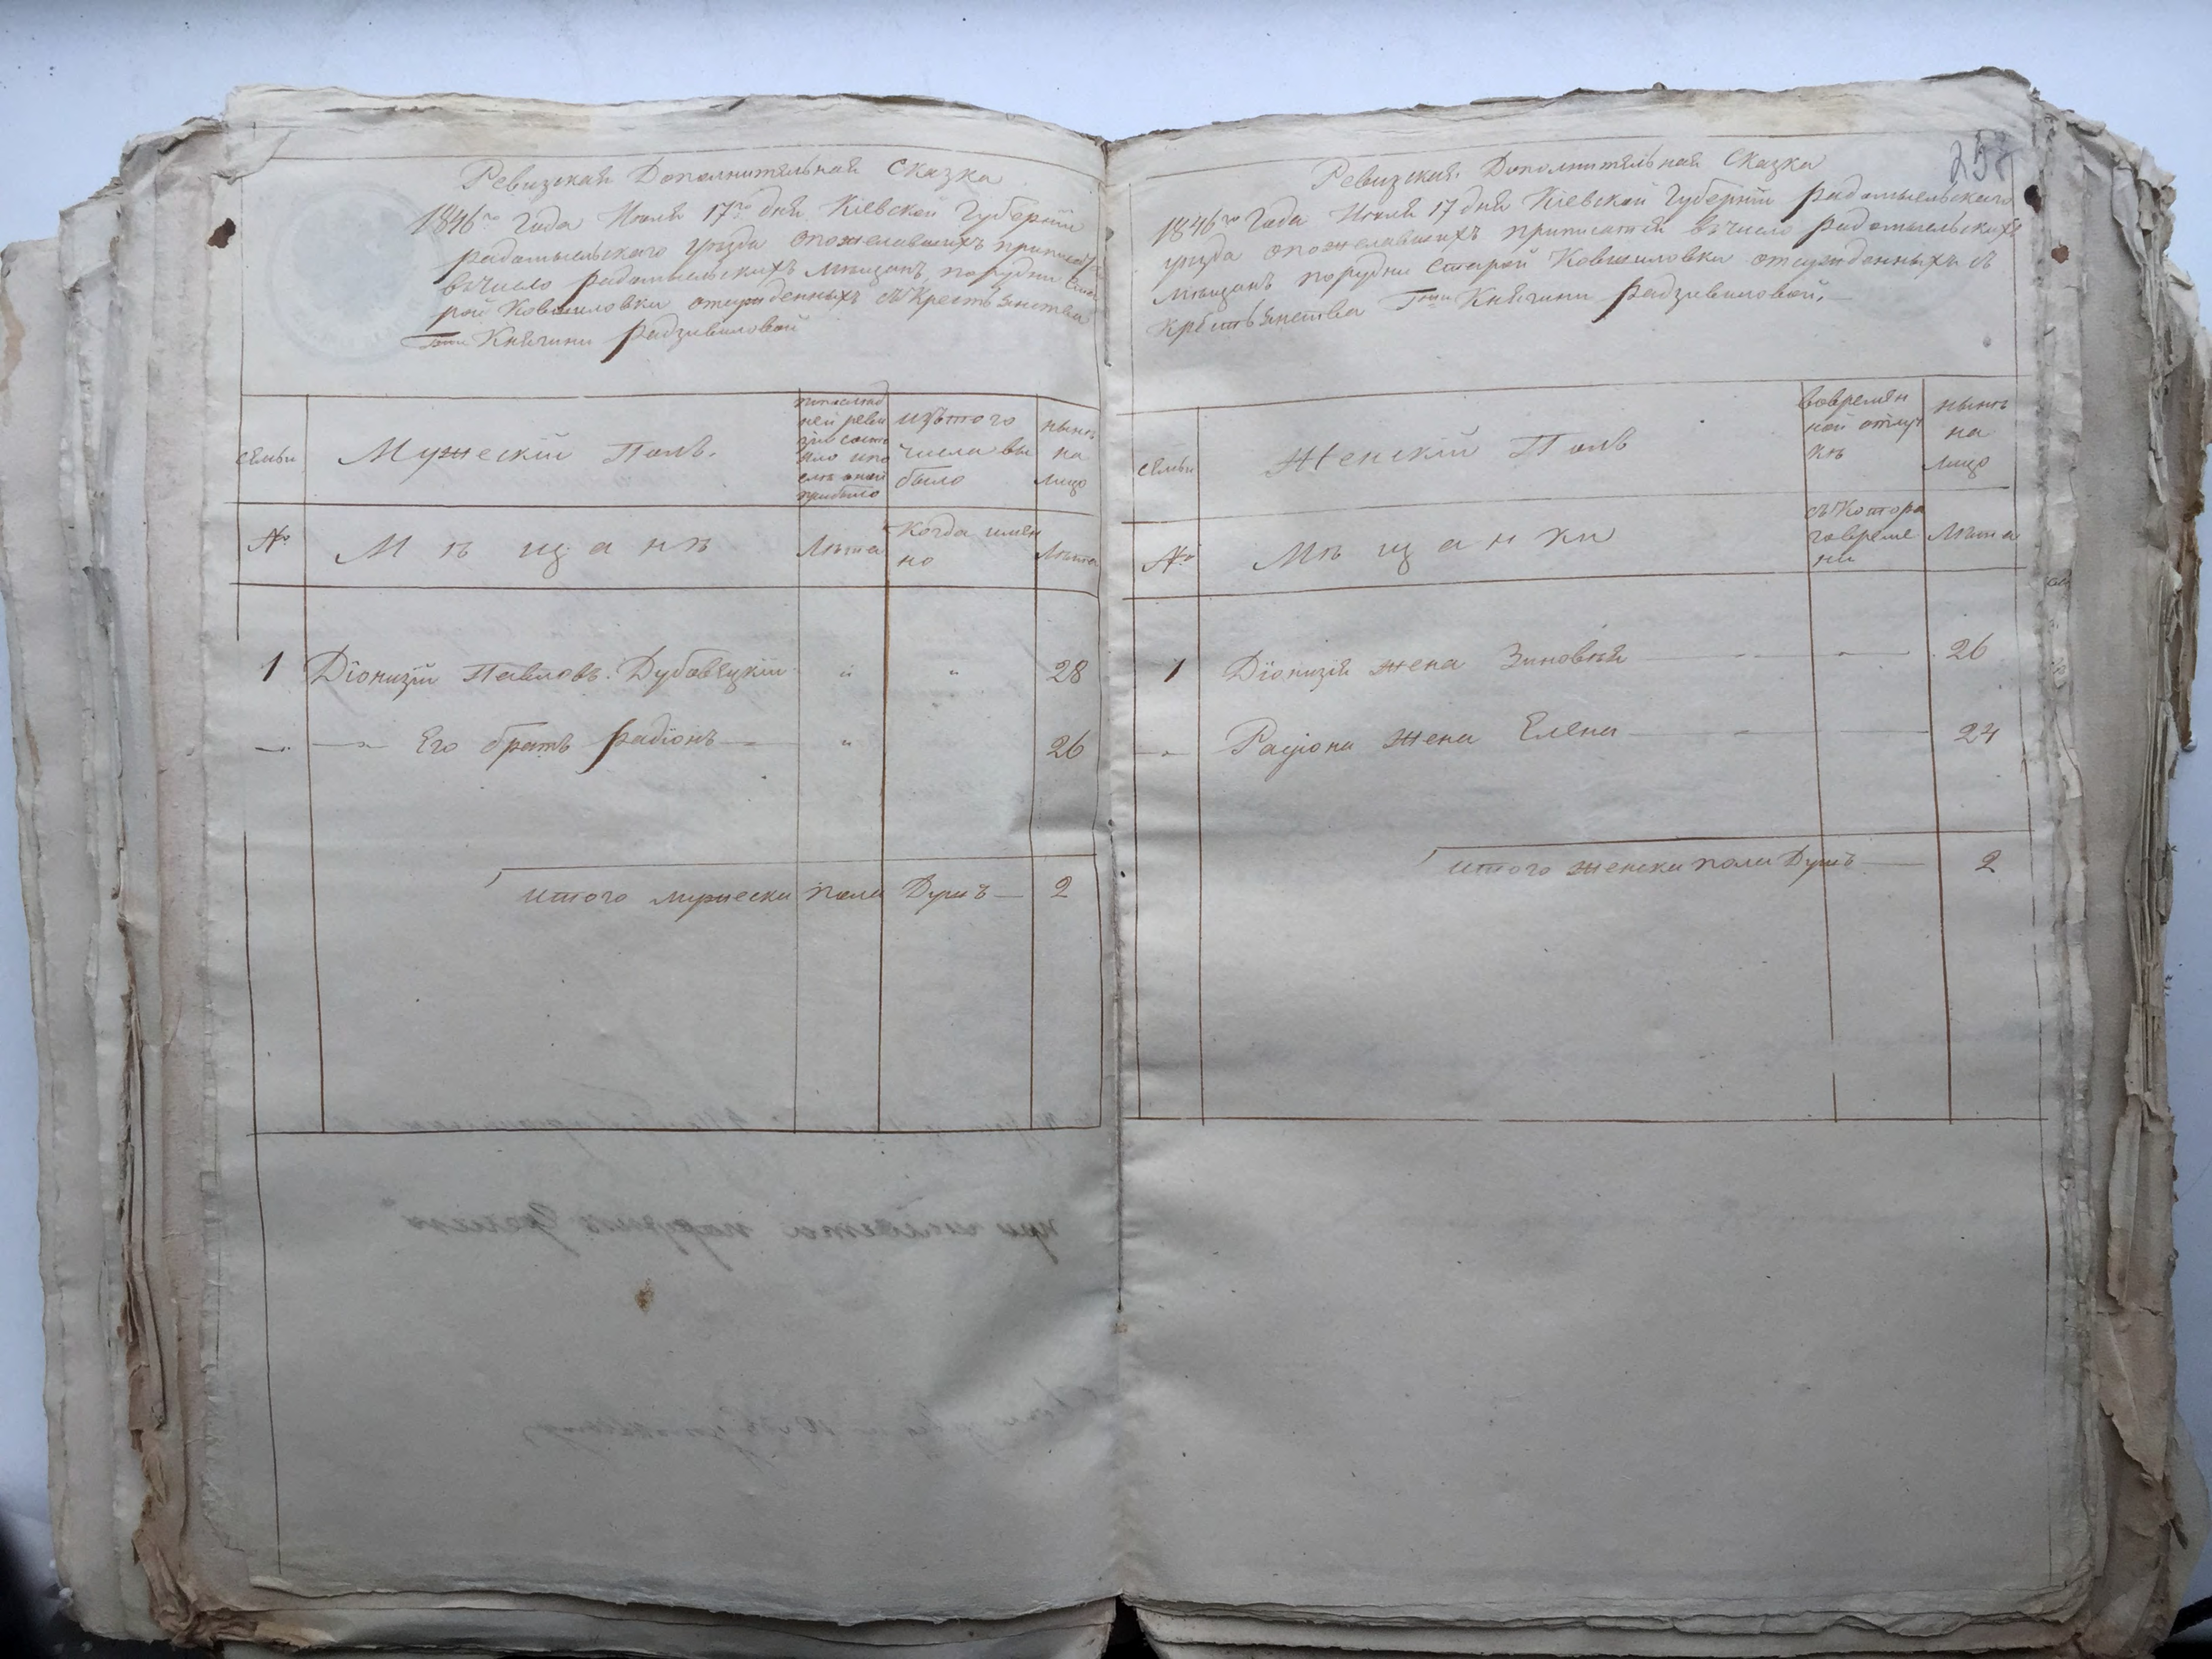 Ревизская Дополнительная Сказка
1846го года Июля 17го дня Кіевской Губерніи
радомысльского уезда опожелавшихъ
вѣчисло радомысльскихъ мѣщанъ, порудни Ста
рой Ковшиловки отсужденныхъ съ Крестьянства
Княгини радзивиловой
семьи
Мужескій Полъ.
попослед
ней реви
зіи состо
яло ипо
слѣ оной
прибыло
изътого
числа вы
было
нынѣ
на
лицо
№
Мѣщанѣ
Лѣта
Когда имен
но
Лѣта
1 Діонизій Павловъ Дубовецкій " " 28
Его братъ радіонъ " 26
итого мужеска пола Душъ 2
257
Ревизская Дополнительная Сказка
1846го Года Июля 17 дня Кіевской Губерніи радомысльского
уезда опожелавшихъ приписатся вѣчисло радомысльскихъ
мѣщанъ порудни Старой Ковшиловки отсужденныхъ съ
Крестьянства Княгини радзивиловой,
семьи
Женскій Полъ
вовремян
ной отлуч
кѣ
нынѣ
на
лицо
№
Мѣщанки
съ Котора
говреме
ни
Лѣта
1 Діонизія жена Зиновѣя " " 26
Радіона жена Елена " 24
итого женска пола Душъ 2